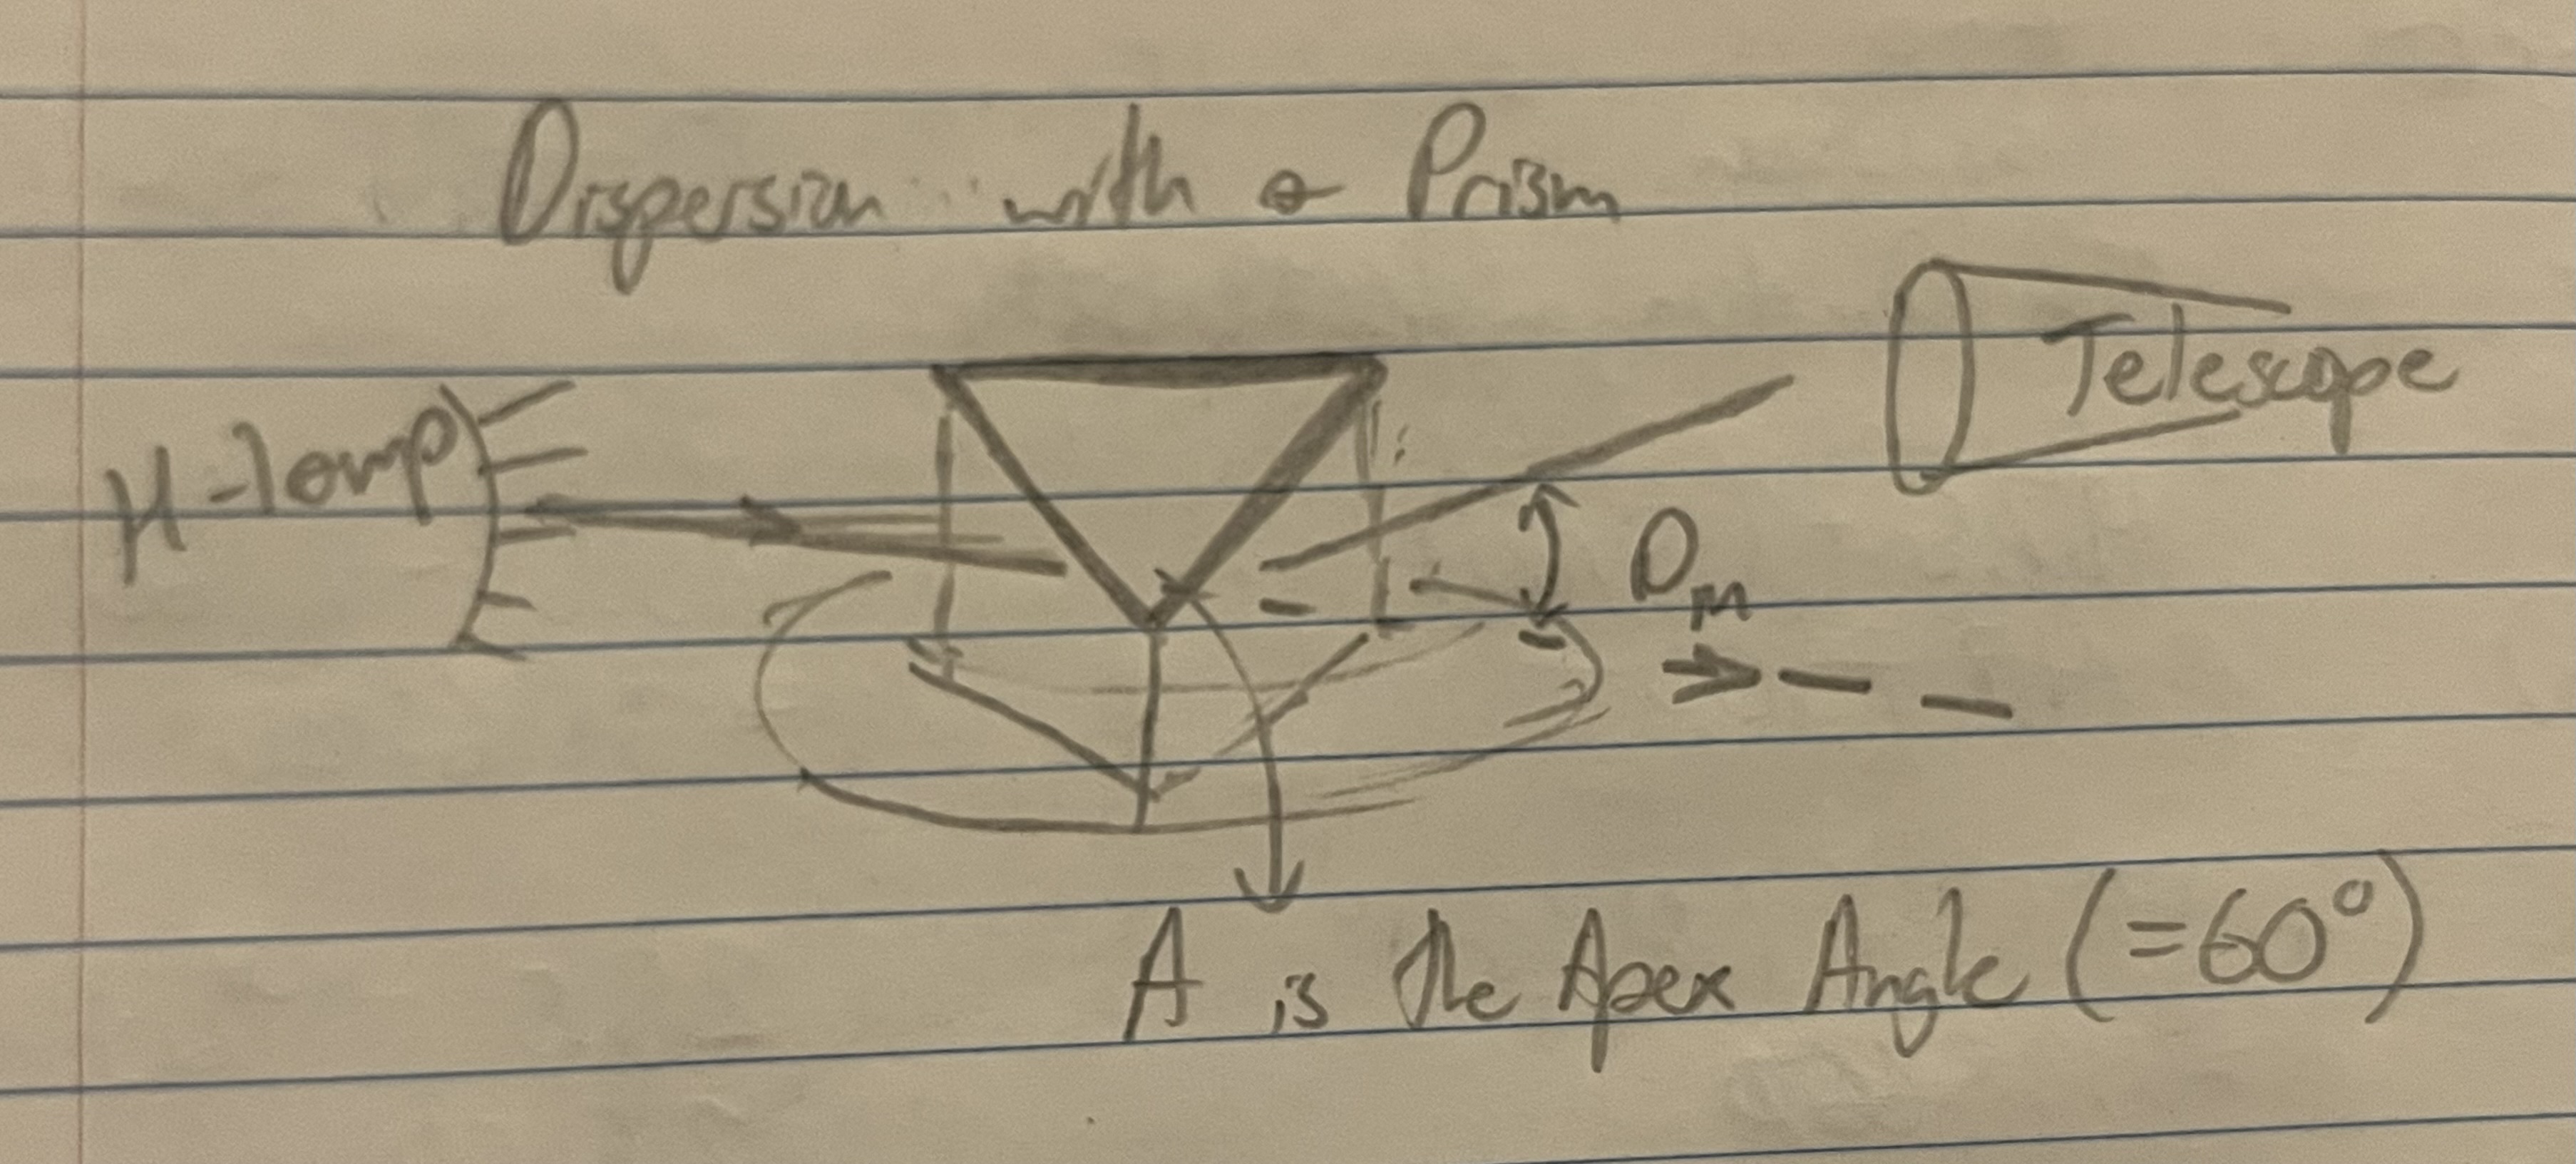 Dispersion with a Prism
H-lamp
Telescope
D_M
A is the Apex Angle (=60°)